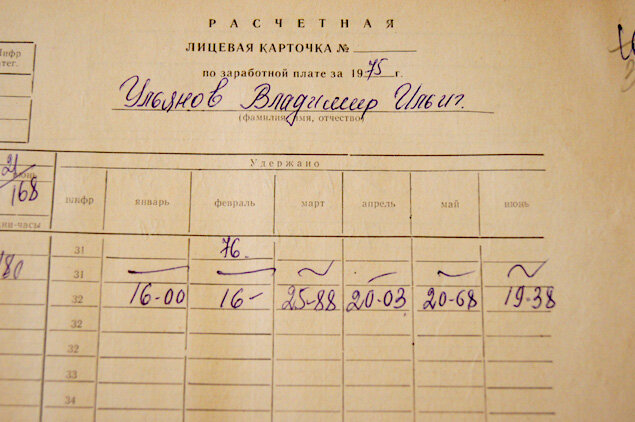 РАСЧЕТНАЯ
ЛИЦЕВАЯ КАРТОЧКА №
по заработной плате за 1975 г.
Ульянов Владимир Ильич.
(фамилия, имя, отчество)
Удержано
168
шифр январь февраль март апрель май июнь
31 76.
180 31
32 16-00 16- 25-88 20-03 20-68 19-38
32
32
33
34